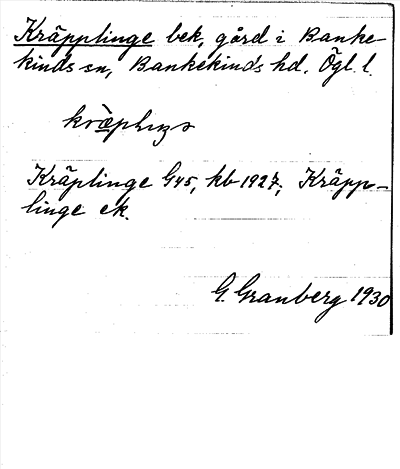 Kräpplinge bek, gård i Banke-
kinds sn, Bankekinds hd. Ögl. l.
Kräplinge G45, kb 1927; Kräpp-
linge ek.
G. Granberg 1930